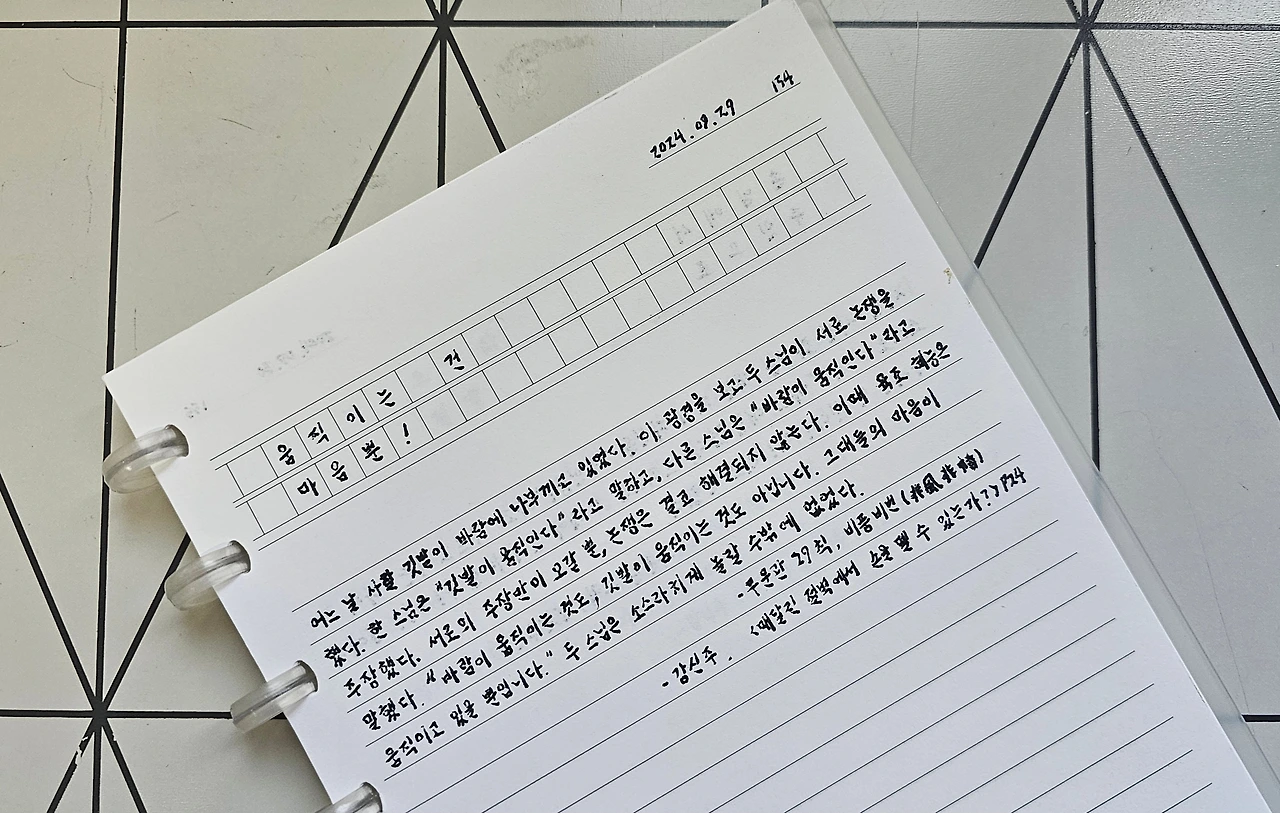 2024.08.29 134
움직이는 건
마음뿐!
어느 날 사찰 깃발이 바람에 나부끼고 있었다. 이 광경을 보고 두 스님이 서로 논쟁을
했다. 한 스님은 "깃발이 움직인다" 라고 말하고, 다른 스님은 "바람이 움직인다" 라고
주장했다. 서로의 주장만이 오갈 뿐, 논쟁은 결코 해결되지 않는다. 이때 육조 혜능은
말했다. "바람이 움직이는 것도, 깃발이 움직이는 것도 아닙니다. 그대들의 마음이
움직이고 있을 뿐입니다." 두 스님은 소스라치게 놀랄 수밖에 없었다.
- 무문관 29칙, 비풍비번 (非風非幡)
- 강신주. <매달린 절벽에서 손을 뗄 수 있는가?> P24